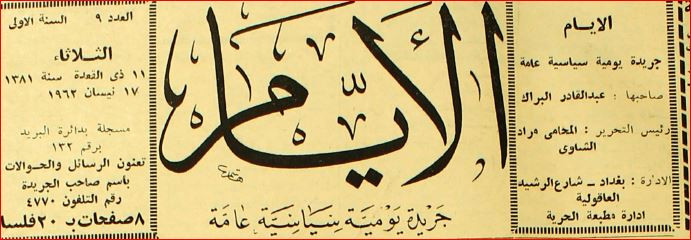 الايام
جريدة يومية سياسية عامة
صاحبها : عبدالقادر البراك
رئيس التحرير : المحامي مراد
الشاوي
الادارة : بغداد – شارع الرشيد
العاقولية
ادارة مطبعة الحرية
الأيام
جريدة يومية سياسية عامة
العدد ٩ السنة الاولى
الثلاثاء
١١ ذي القعدة سنة ١٣٨١
١٧ نيسان ١٩٦٢
مسجلة بدائرة البريد
برقم ١٣٢
تعنون الرسائل والحوالات
بأسم صاحب الجريدة
رقم التلفون ٤٧٧٠
٨ صفحات بـ ٢٠ فلسا